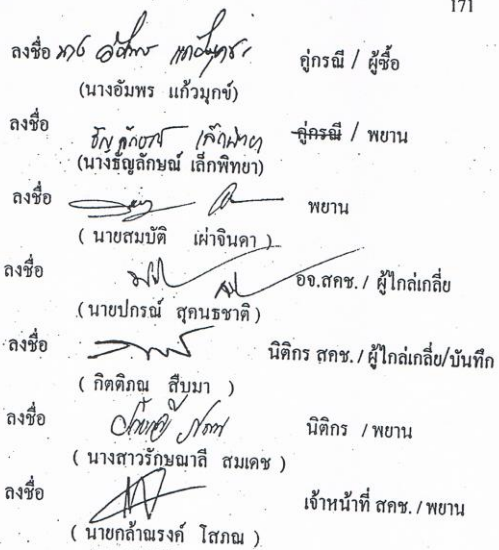 171
ลงชื่อ นาง อัมพร แก้วมุกข์ คู่กรณี / ผู้ซื้อ
(นางอัมพร แก้วมุกข์)
ลงชื่อ ธัญลักษณ์ เล็กพิทยา คู่กรณี / พยาน
(นางธัญลักษณ์ เล็กพิทยา)
ลงชื่อ พยาน
( นายสมบัติ เผ่าจินดา )
ลงชื่อ อจ.สคช. / ผู้ไกล่เกลี่ย
( นายปกรณ์ สุคนธชาติ )
ลงชื่อ นิติกร สคช. / ผู้ไกล่เกลี่ย/บันทึก
( กิตติภณ สืบมา )
ลงชื่อ นิติกร / พยาน
( นางสาวรักษณาลี สมเดช )
ลงชื่อ เจ้าหน้าที่ สคช. / พยาน
( นายกล้าณรงค์ โสภณ )